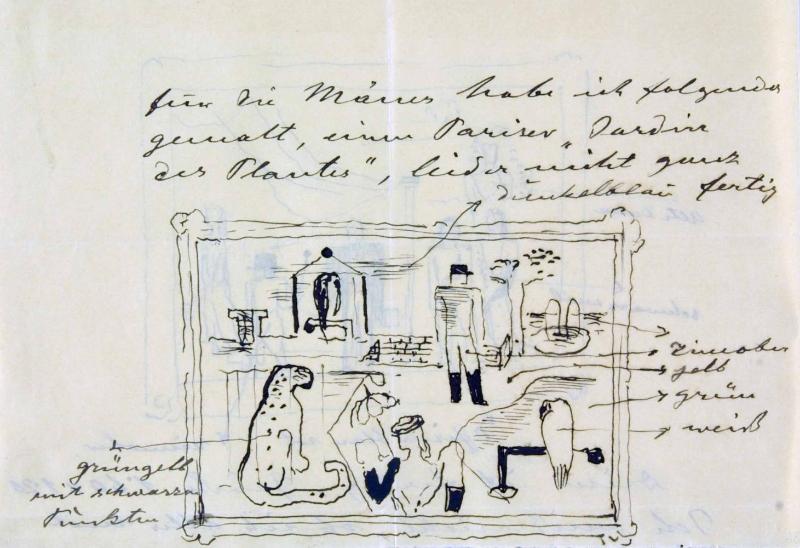 für die Mänes habe ich folgendes
gemalt, einen Pariser „Jardin
des Plantes", leider nicht ganz
fertig
dunkelblau
zinnober
gelb
grün
weiß
grüngelb
mit schwarzen
Punkten